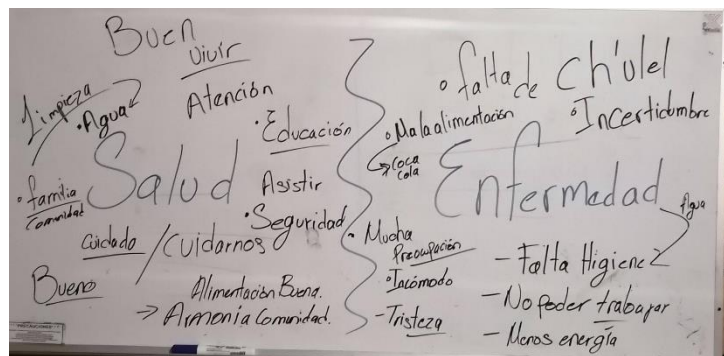 Buen
Vivir
Limpieza
•Agua
Atención
•Educación
Salud
Asistir
•familia
Comunidad
•Seguridad
Cuidado / Cuidarnos
Bueno
Alimentación Buena.
→ Armonía Comunidad.
•falta de Ch'ulel
•Mala alimentación
→Coca
Cola
•Incertidumbre
Enfermedad
Agua
• Mucha
Preocupación
•Incómodo
-Tristeza
- Falta Higiene
- No poder trabajar
- Menos energía